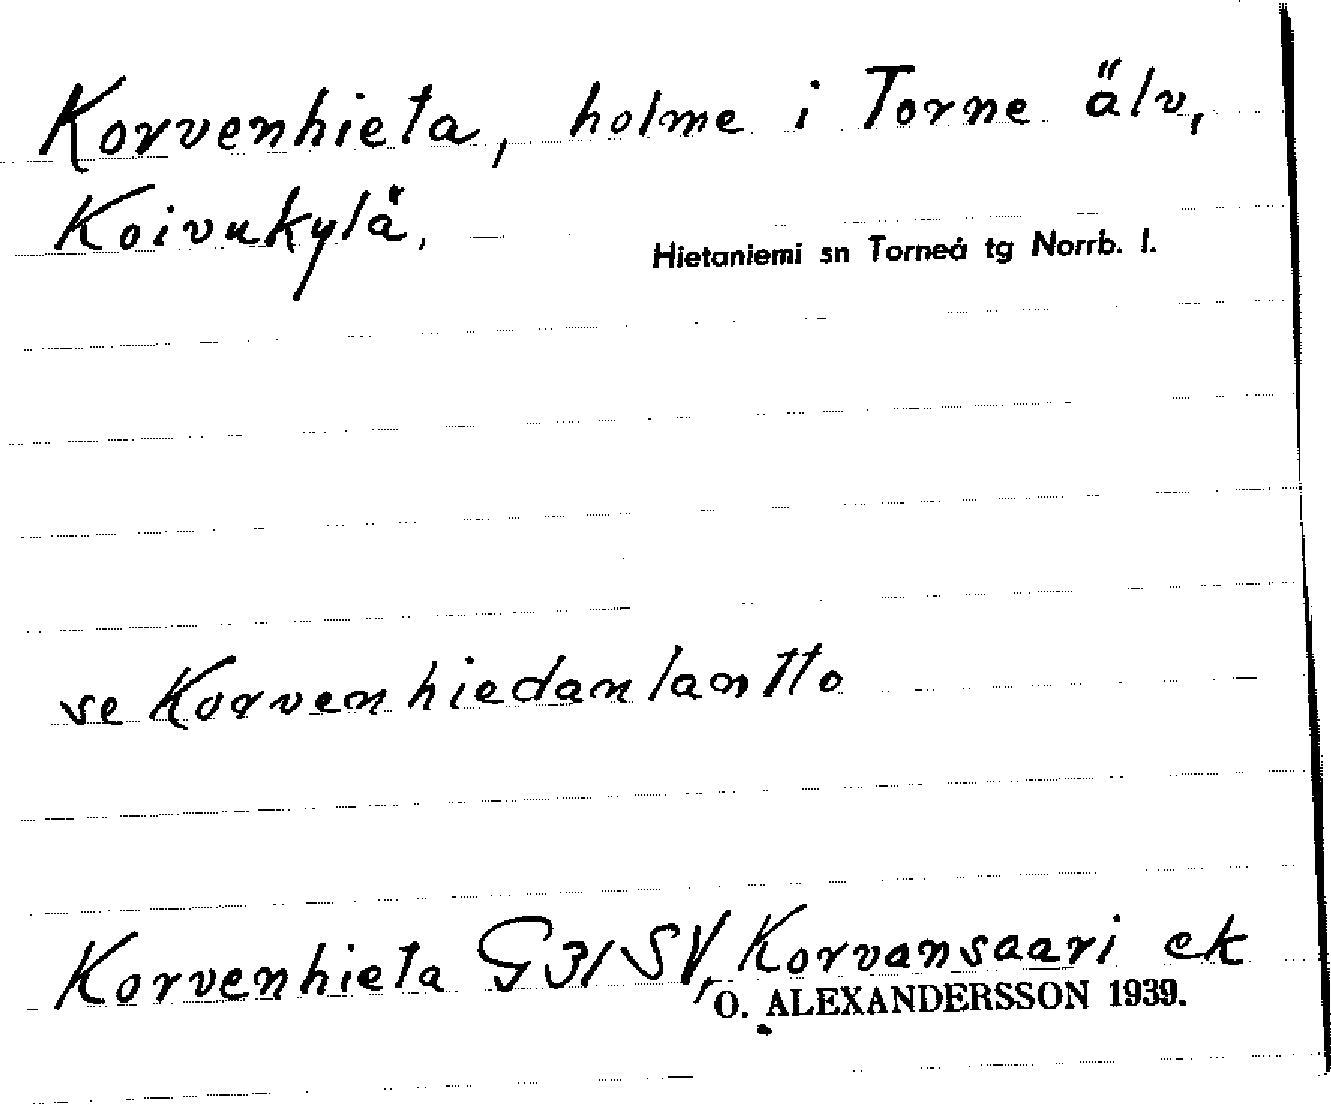 Korvenhieta, holme i Torne älv,
Koivukylä.
Hietaniemi sn Torneå tg Norrb. l.
se Korvenhiedanlantto
Korvenhieta G 31 SV, Korvansaari ek
O. ALEXANDERSSON 1939.